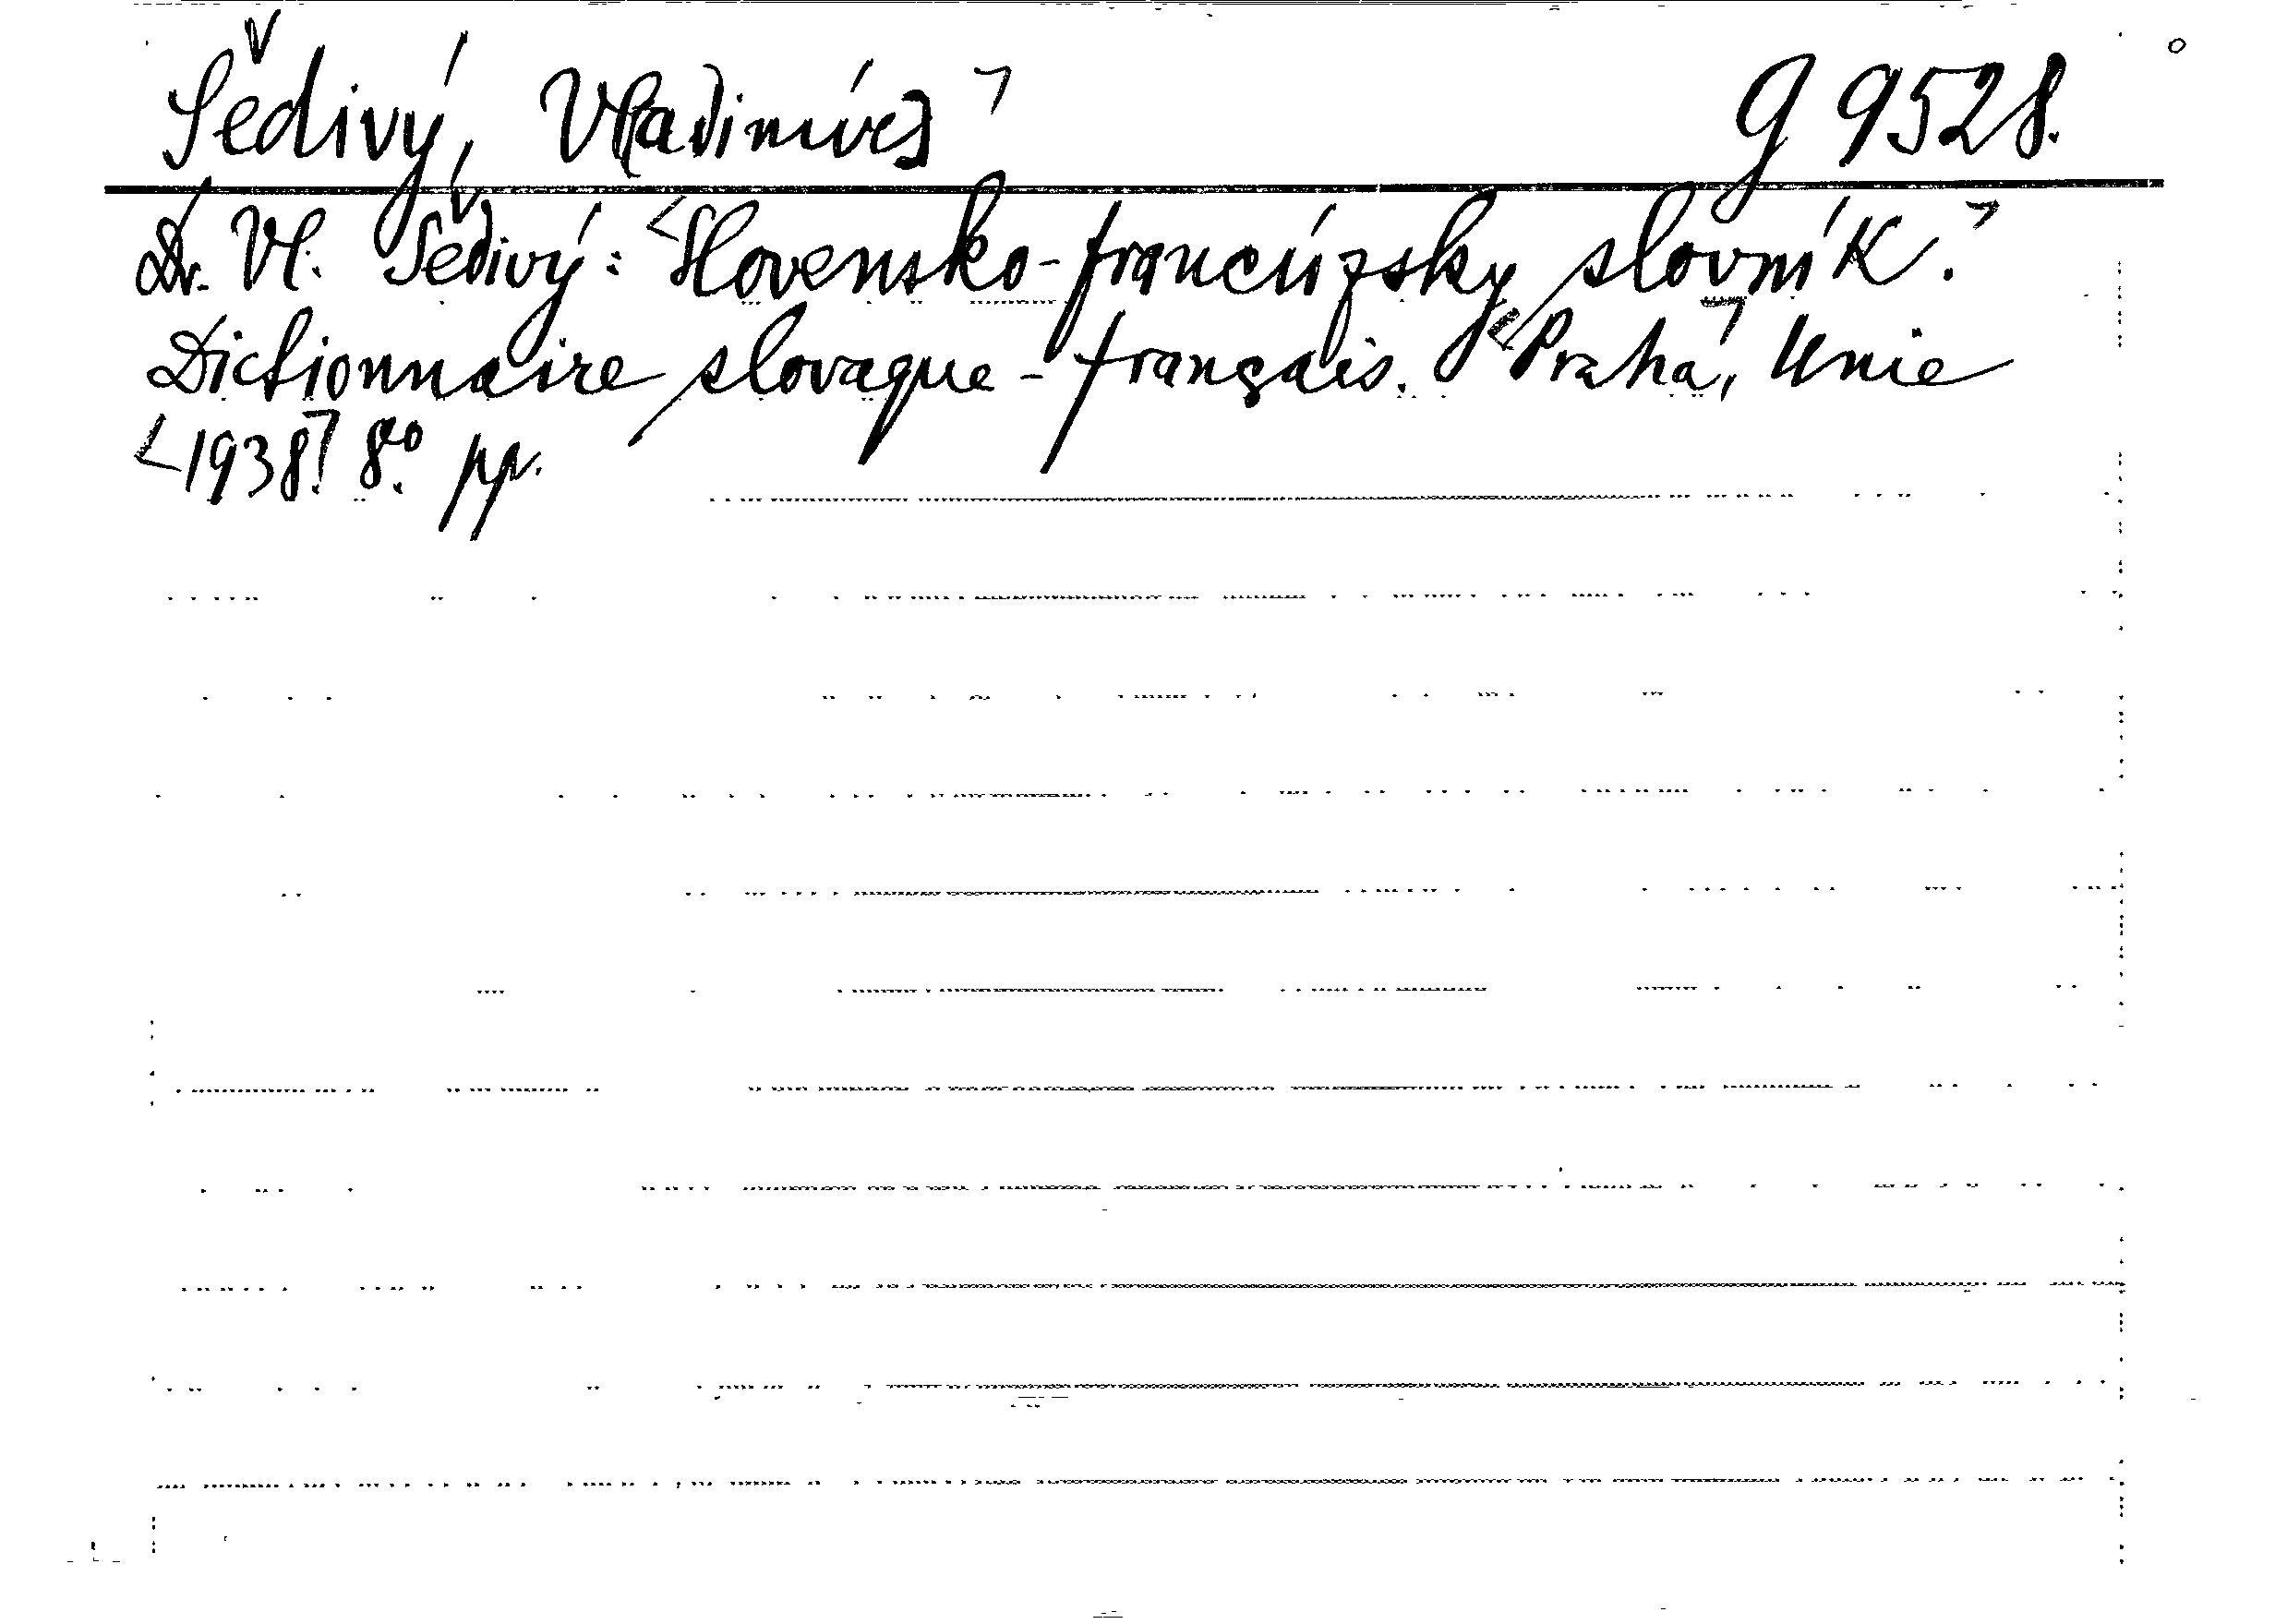 Šedivý, Vladimír ⌝ G 9528.
Dr. Vl. Šedivý: <Slovensko-francúzsky slovník.⌝
Dictionnaire slovaque-français. <Praha⌝, Unie
<1938⌝. 8º. pp.